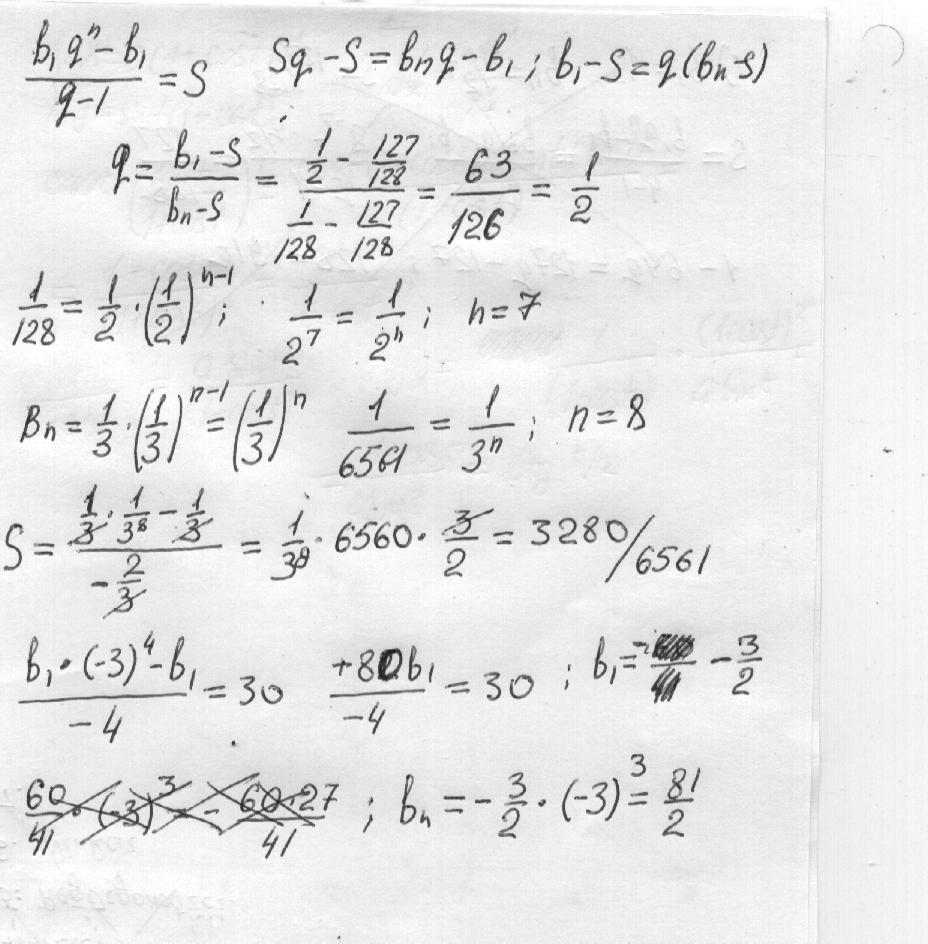 (b₁qⁿ - b₁)/(q-1) = S   Sq - S = bₙq - b₁; b₁ - S = q(bₙ - S)
q = (b₁ - S)/(bₙ - S) = (1/2 - 127/128)/(1/128 - 127/128) = 63/126 = 1/2
1/128 = 1/2 · (1/2)ⁿ⁻¹; 1/2⁷ = 1/2ⁿ; n = 7
Bₙ = 1/3 · (1/3)ⁿ⁻¹ = (1/3)ⁿ   1/6561 = 1/3ⁿ; n = 8
S = (1/3 · 1/3⁸ - 1/3)/(-2/3) = 1/3⁸ · 6560 · 3/2 = 3280/6561
(b₁ · (-3)⁴ - b₁)/(-4) = 30   (+80b₁)/(-4) = 30; b₁ = - 3/2
60/41 · (-3)³ = - (60·27)/41; bₙ = - 3/2 · (-3)³ = 81/2